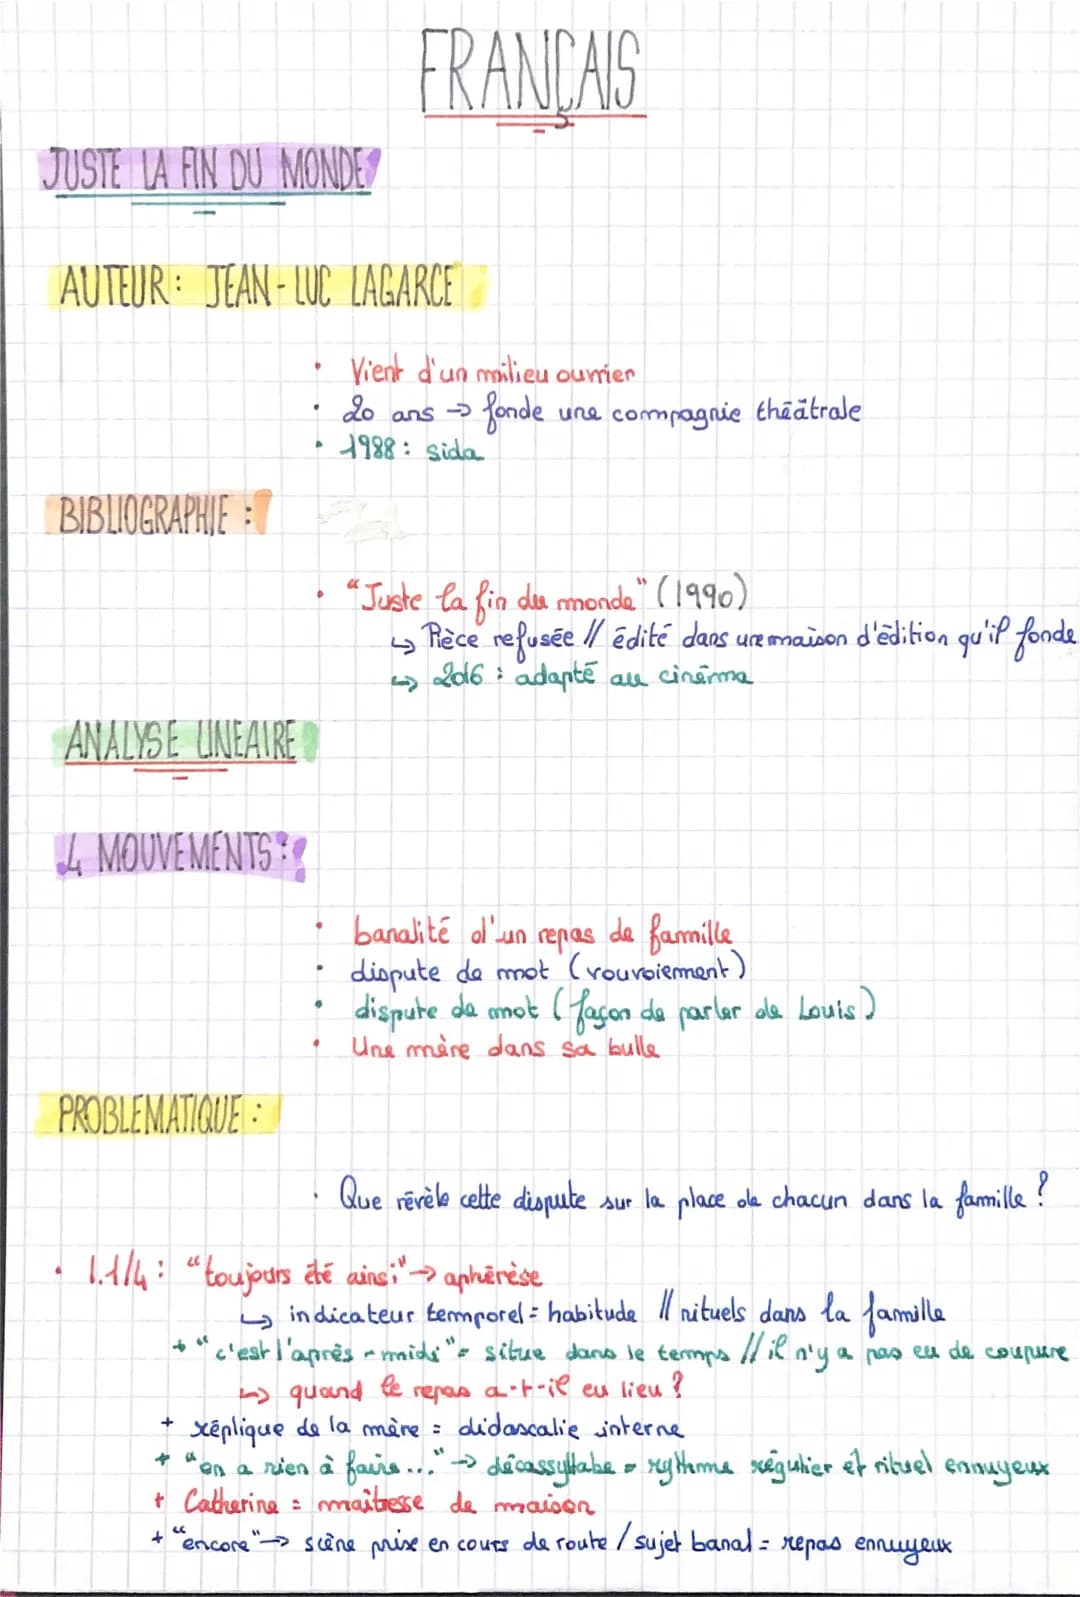 FRANÇAIS
JUSTE LA FIN DU MONDE
AUTEUR : JEAN-LUC LAGARCE
• Vient d'un milieu ouvrier
• 20 ans → fonde une compagnie théâtrale
• 1988 : sida
BIBLIOGRAPHIE :
• "Juste la fin du monde" (1990)
↳ Pièce refusée // édité dans une maison d'édition qu'il fonde
↳ 2016 : adapté au cinéma
ANALYSE LINEAIRE
4 MOUVEMENTS :
• banalité d'un repas de famille
• dispute de mot (vouvoiement)
• dispute de mot (façon de parler de Louis)
• Une mère dans sa bulle
PROBLEMATIQUE :
• Que révèle cette dispute sur la place de chacun dans la famille ?
• l.1/4 : "toujours été ainsi" → aphérèse
↳ indicateur temporel = habitude // rituels dans la famille
+ "c'est l'après-midi" = situe dans le temps // il n'y a pas eu de coupure
↳ quand le repas a-t-il eu lieu ?
+ réplique de la mère = didascalie interne
+ "on a rien à faire..." → décassyllabe = rythme régulier et rituel ennuyeux
+ Catherine = maîtresse de maison
+ "encore" → scène prise en cours de route / sujet banal = repas ennuyeux